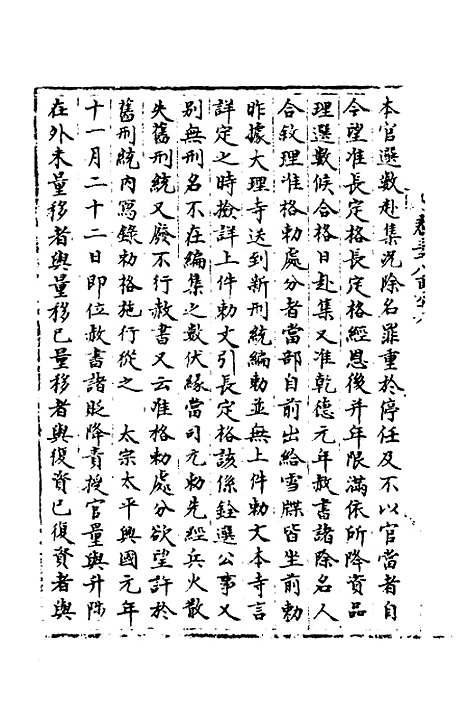 本官選數赴集況除名罪重於停任及不以官當者自
今望准長定格長定格經恩後并年限滿依所降資品
理選數候合格日赴集又准乾德元年赦書諸除名人
合敘理准格勅處分者當部自前出給雪牒皆坐前勅
昨據大理寺送到新刑統編勅並無上件勅文本寺言
詳定之時檢詳上件勅文引長定格該係銓選公事又
別無刑名不在編集之數伏緣當司元勅先經兵火散
失舊刑統又廢不行赦書又云准格勅處分欲望許於
舊刑統內寫錄勅格施行從之 太宗太平興國元年
十一月二十二日即位赦書諸貶降責授官量與升陟
在外未量移者與量移已量移者與復資已復資者與